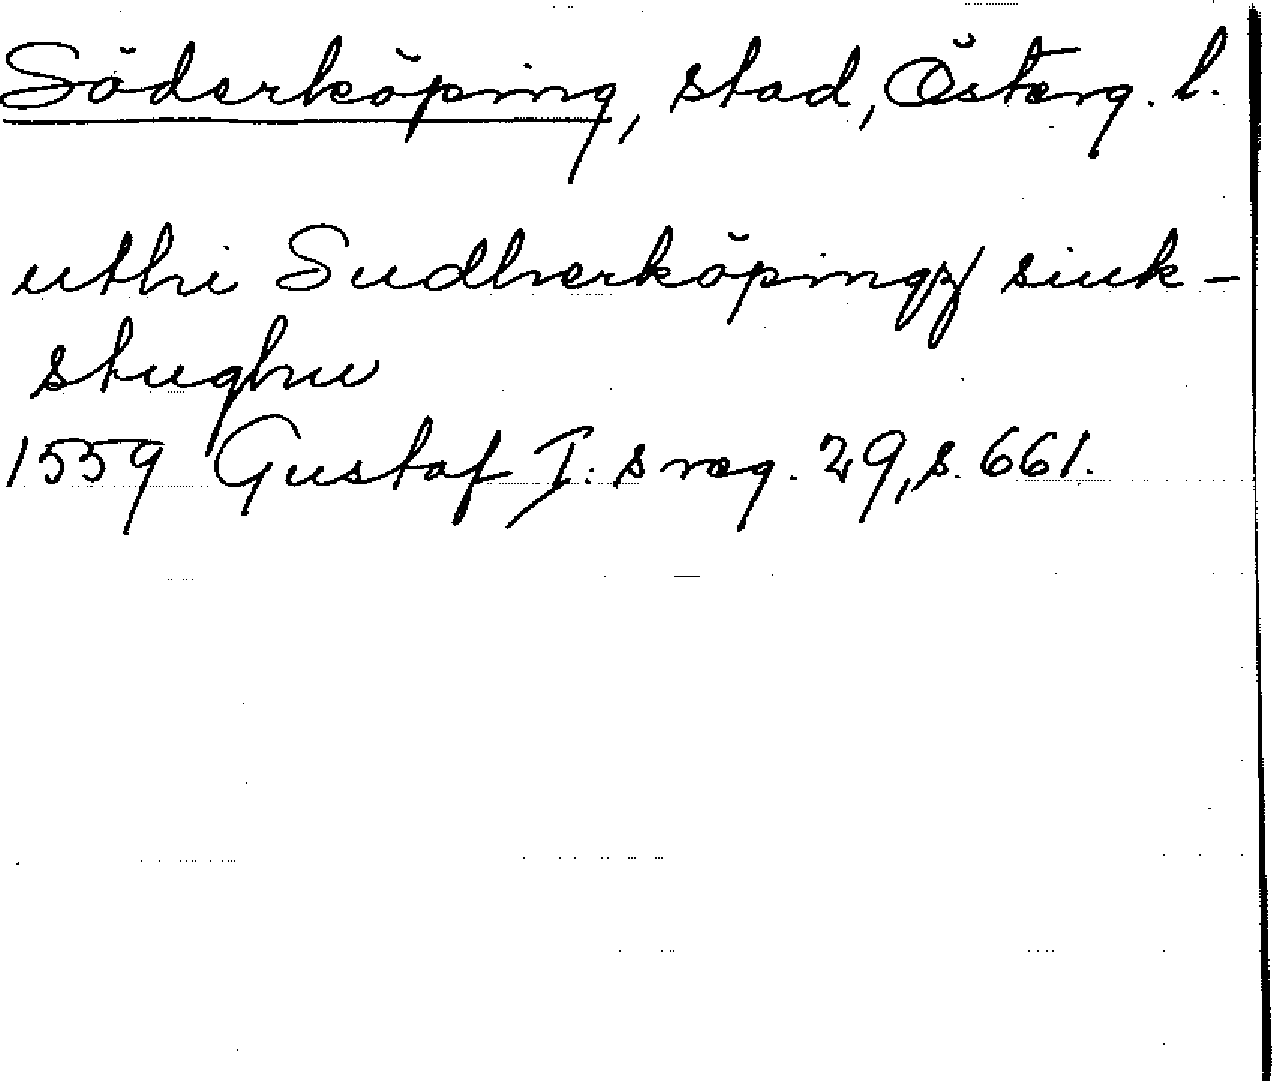 Söderköping, stad, Österg. l.
uthi Sudherköpingz siuk-
stughu
1559 Gustaf I:s reg. 29, s. 661.